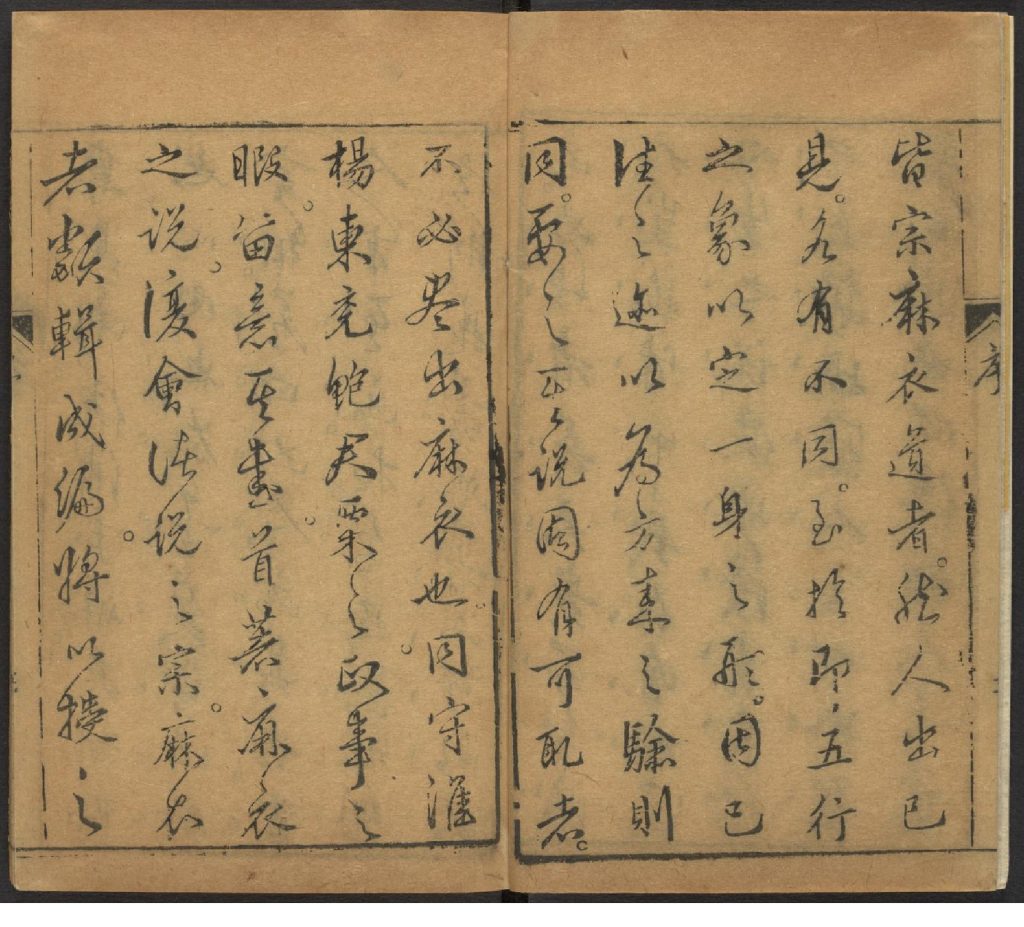 皆宗麻衣道者。然人出己
見。各有不同。至於即五行
之象以定一身之形。因已
往之迹以為方來之驗則
同。要之其說固有可取者。
不必盡出麻衣也。同守淮
楊東兗鮑君栗之政事之
暇。留意其書。首著麻衣
之說。復會諸說之宗。麻衣
者類輯成編。將以授之
序